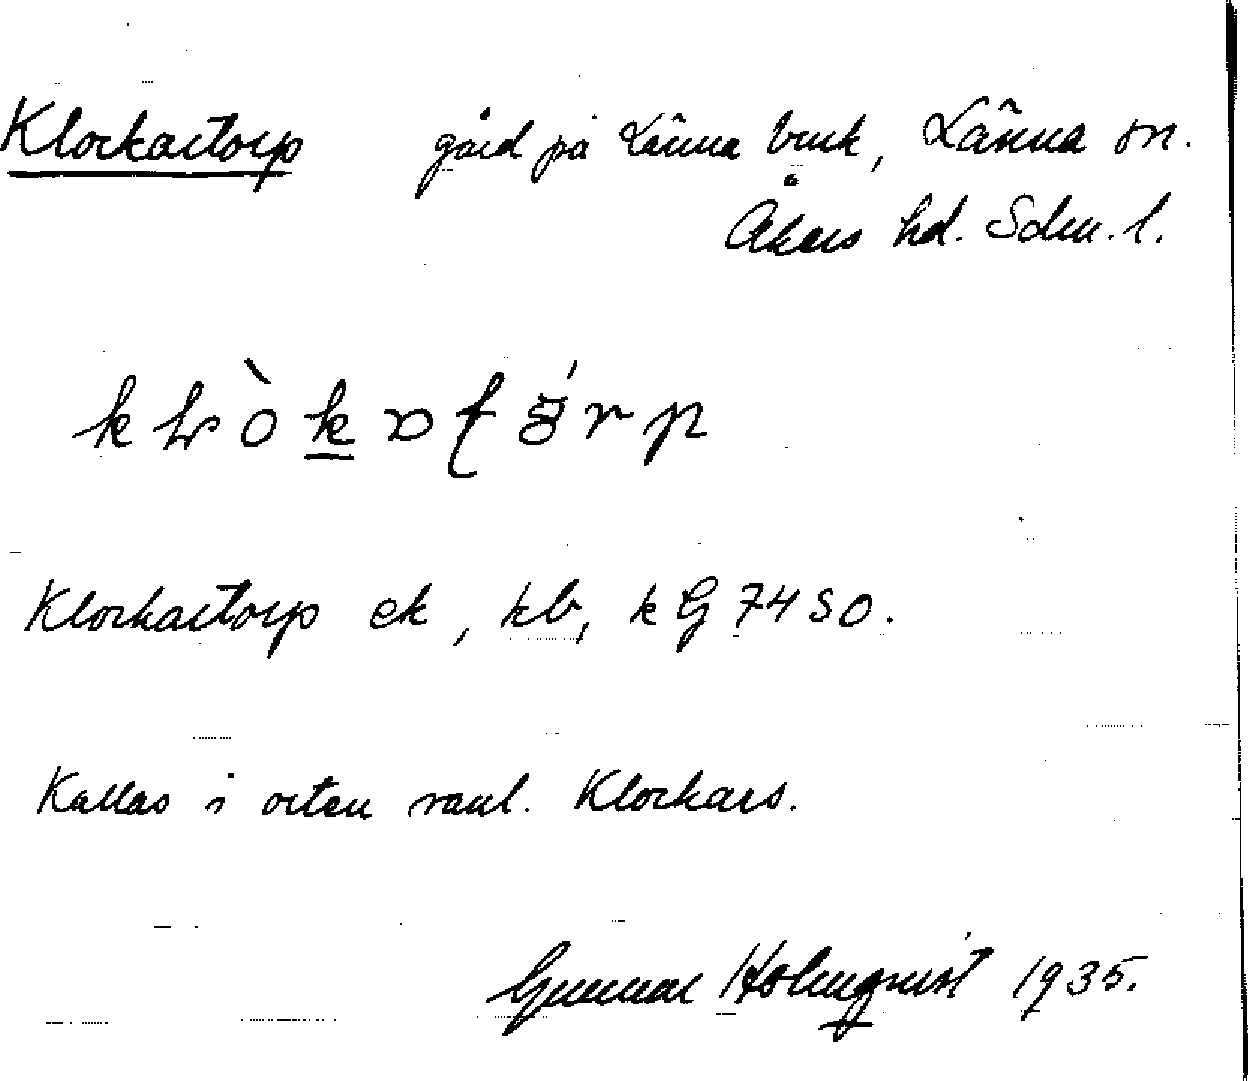 Klockartorp gård på Länna bruk, Länna sn.
Åkers hd. Södm. l.
Klockartorp ek, kb, kG 74 SO.
Kallas i orten vanl. Klockars.
Gunnar Holmqvist 1935.